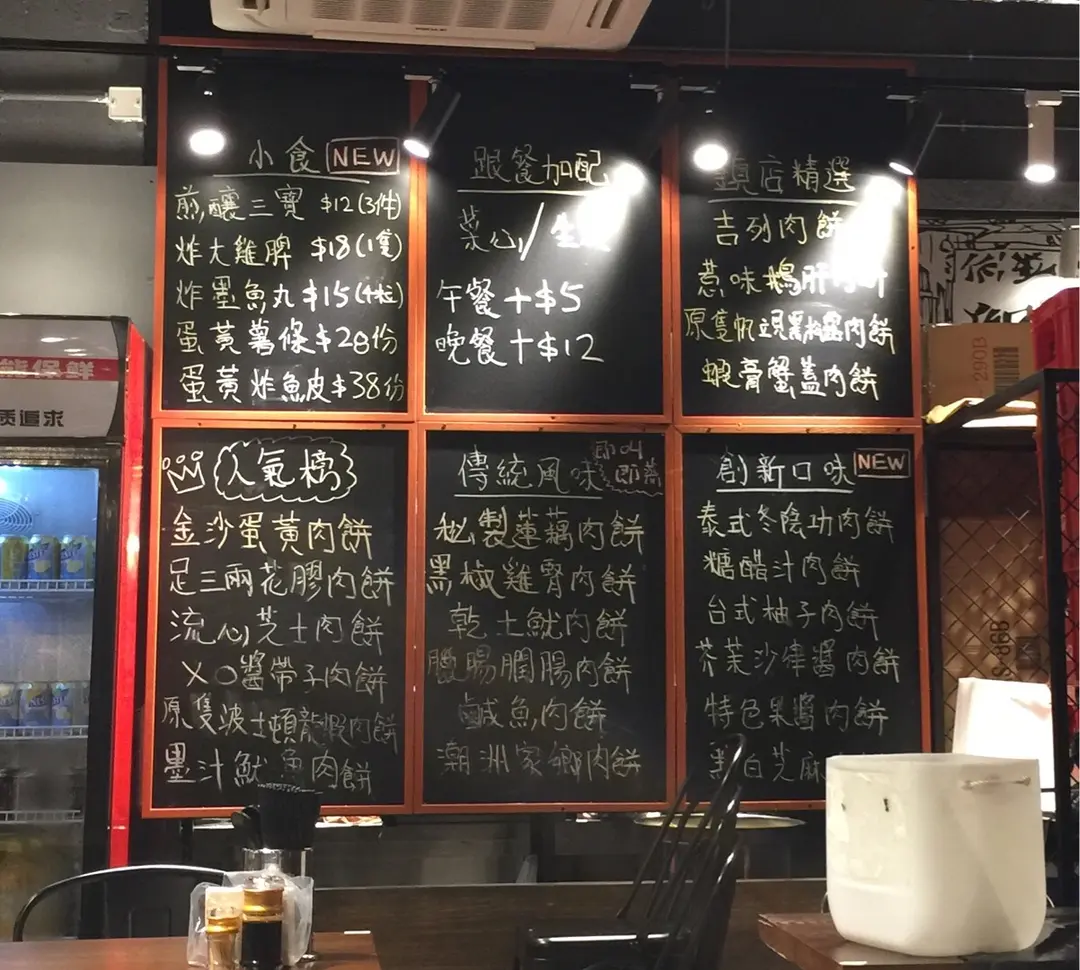 小食 NEW
煎釀三寶 $12(3件)
炸大雞脾 $18(1隻)
炸墨魚丸 $15(4粒)
蛋黃薯條 $28份
蛋黃炸魚皮 $38份
跟餐加配
菜心/生
午餐+$5
晚餐+$12
鎮店精選
吉列肉餅
惹味鵝肝
原隻帆立貝黑松露肉餅
蝦膏蟹蓋肉餅
人氣榜
金沙蛋黃肉餅
足三兩花膠肉餅
流心芝士肉餅
XO醬帶子肉餅
原隻波士頓龍蝦肉餅
墨汁魷魚肉餅
傳統風味 即叫即蒸
秘製蓮藕肉餅
黑椒雞腎肉餅
乾土魷肉餅
臘腸膶腸肉餅
鹹魚肉餅
潮洲家鄉肉餅
創新口味 NEW
泰式冬陰功肉餅
糖醋汁肉餅
台式柚子肉餅
芥茉沙律醬肉餅
特色果醬肉餅
黑白芝麻
质追求
290B